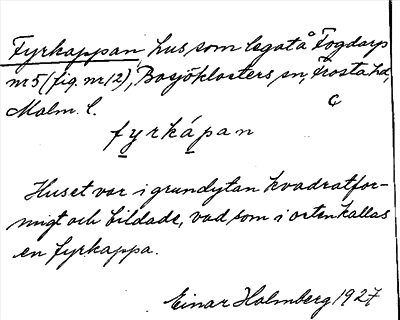 Fyrkappan, hus som legat å Fogdarp
nr 5 (fig. nr 12), Bosjöklosters sn, Frosta hd,
Malm. l. C
fyrkápan
Huset var i grundytan kvadratfor-
migt och bildade, vad som i orten kallas
en fyrkappa.
Einar Holmberg 1927